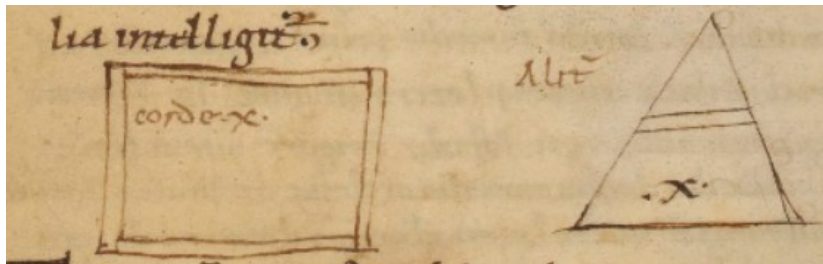 lia intelligit᷑.
corde .x.
Alit᷑
.x.